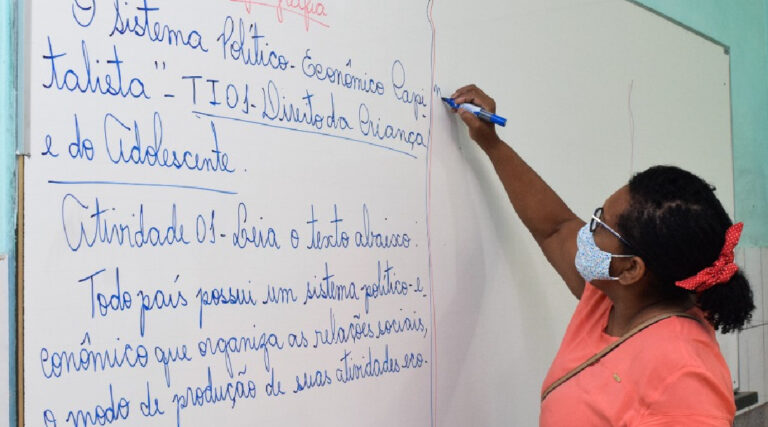 O Sistema Político-Econômico Capi-
talista" - TI01-Direito da Criança
e do Adolescente.
Atividade 01-Leia o texto abaixo:
Todo país possui um sistema político-e-
conômico que organiza as relações sociais,
o modo de produção de suas atividades eco-